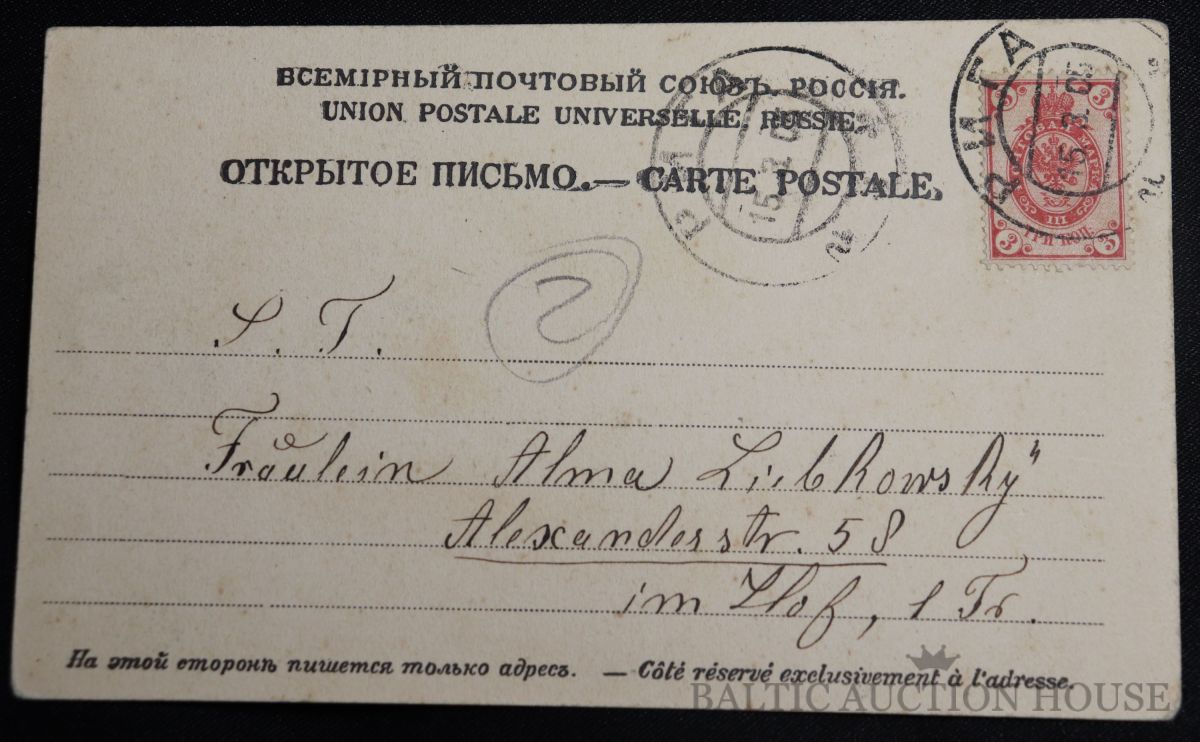 ВСЕМІРНЫЙ ПОЧТОВЫЙ СОЮЗЪ. РОССІЯ.
UNION POSTALE UNIVERSELLE. RUSSIE.
ОТКРЫТОЕ ПИСЬМО. — CARTE POSTALE.
РИГА
15 2 0
РИГА
15 3 0
3 3
ПОЧТОВАЯ МАРКА
III
ТРИ КОП.
3 3
S. T.
2
Fräulein Alma Liebkowsky"
Alexanderstr. 58
im Hof, 1 Tr.
На этой сторонѣ пишется только адресъ. — Côté réservé exclusivement à l'adresse.
BALTIC AUCTION HOUSE